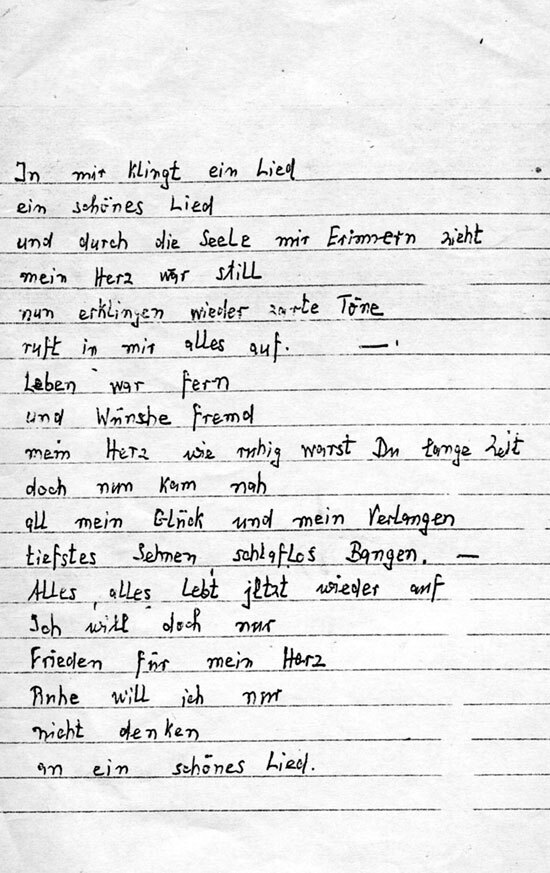 In mir klingt ein Lied
ein schönes Lied
und durch die Seele mir Erinnern zieht
mein Herz war still
nun erklingen wieder zarte Töne
ruft in mir alles auf. —.
Leben war fern
und Wünshe fremd
mein Herz wie ruhig warst Du lange Zeit
doch nun kam nah
all mein Glück und mein Verlangen
tiefstes Sehnen schlaflos Bangen. —
Alles, alles Lebt jetzt wieder auf
Ich will doch nur
Frieden für mein Herz
Ruhe will ich nur
nicht denken
an ein schönes Lied.